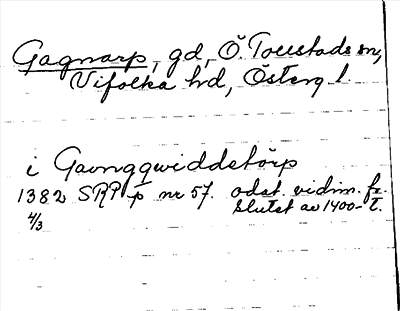 Gagnarp, gd, Ö. Tollstads sn,
Vifolka hd, Österg l.
i Gavngqwiddstörp
1382 SRP p nr 57. odat. vidim. fr.
4/3 slutet av 1400-t.